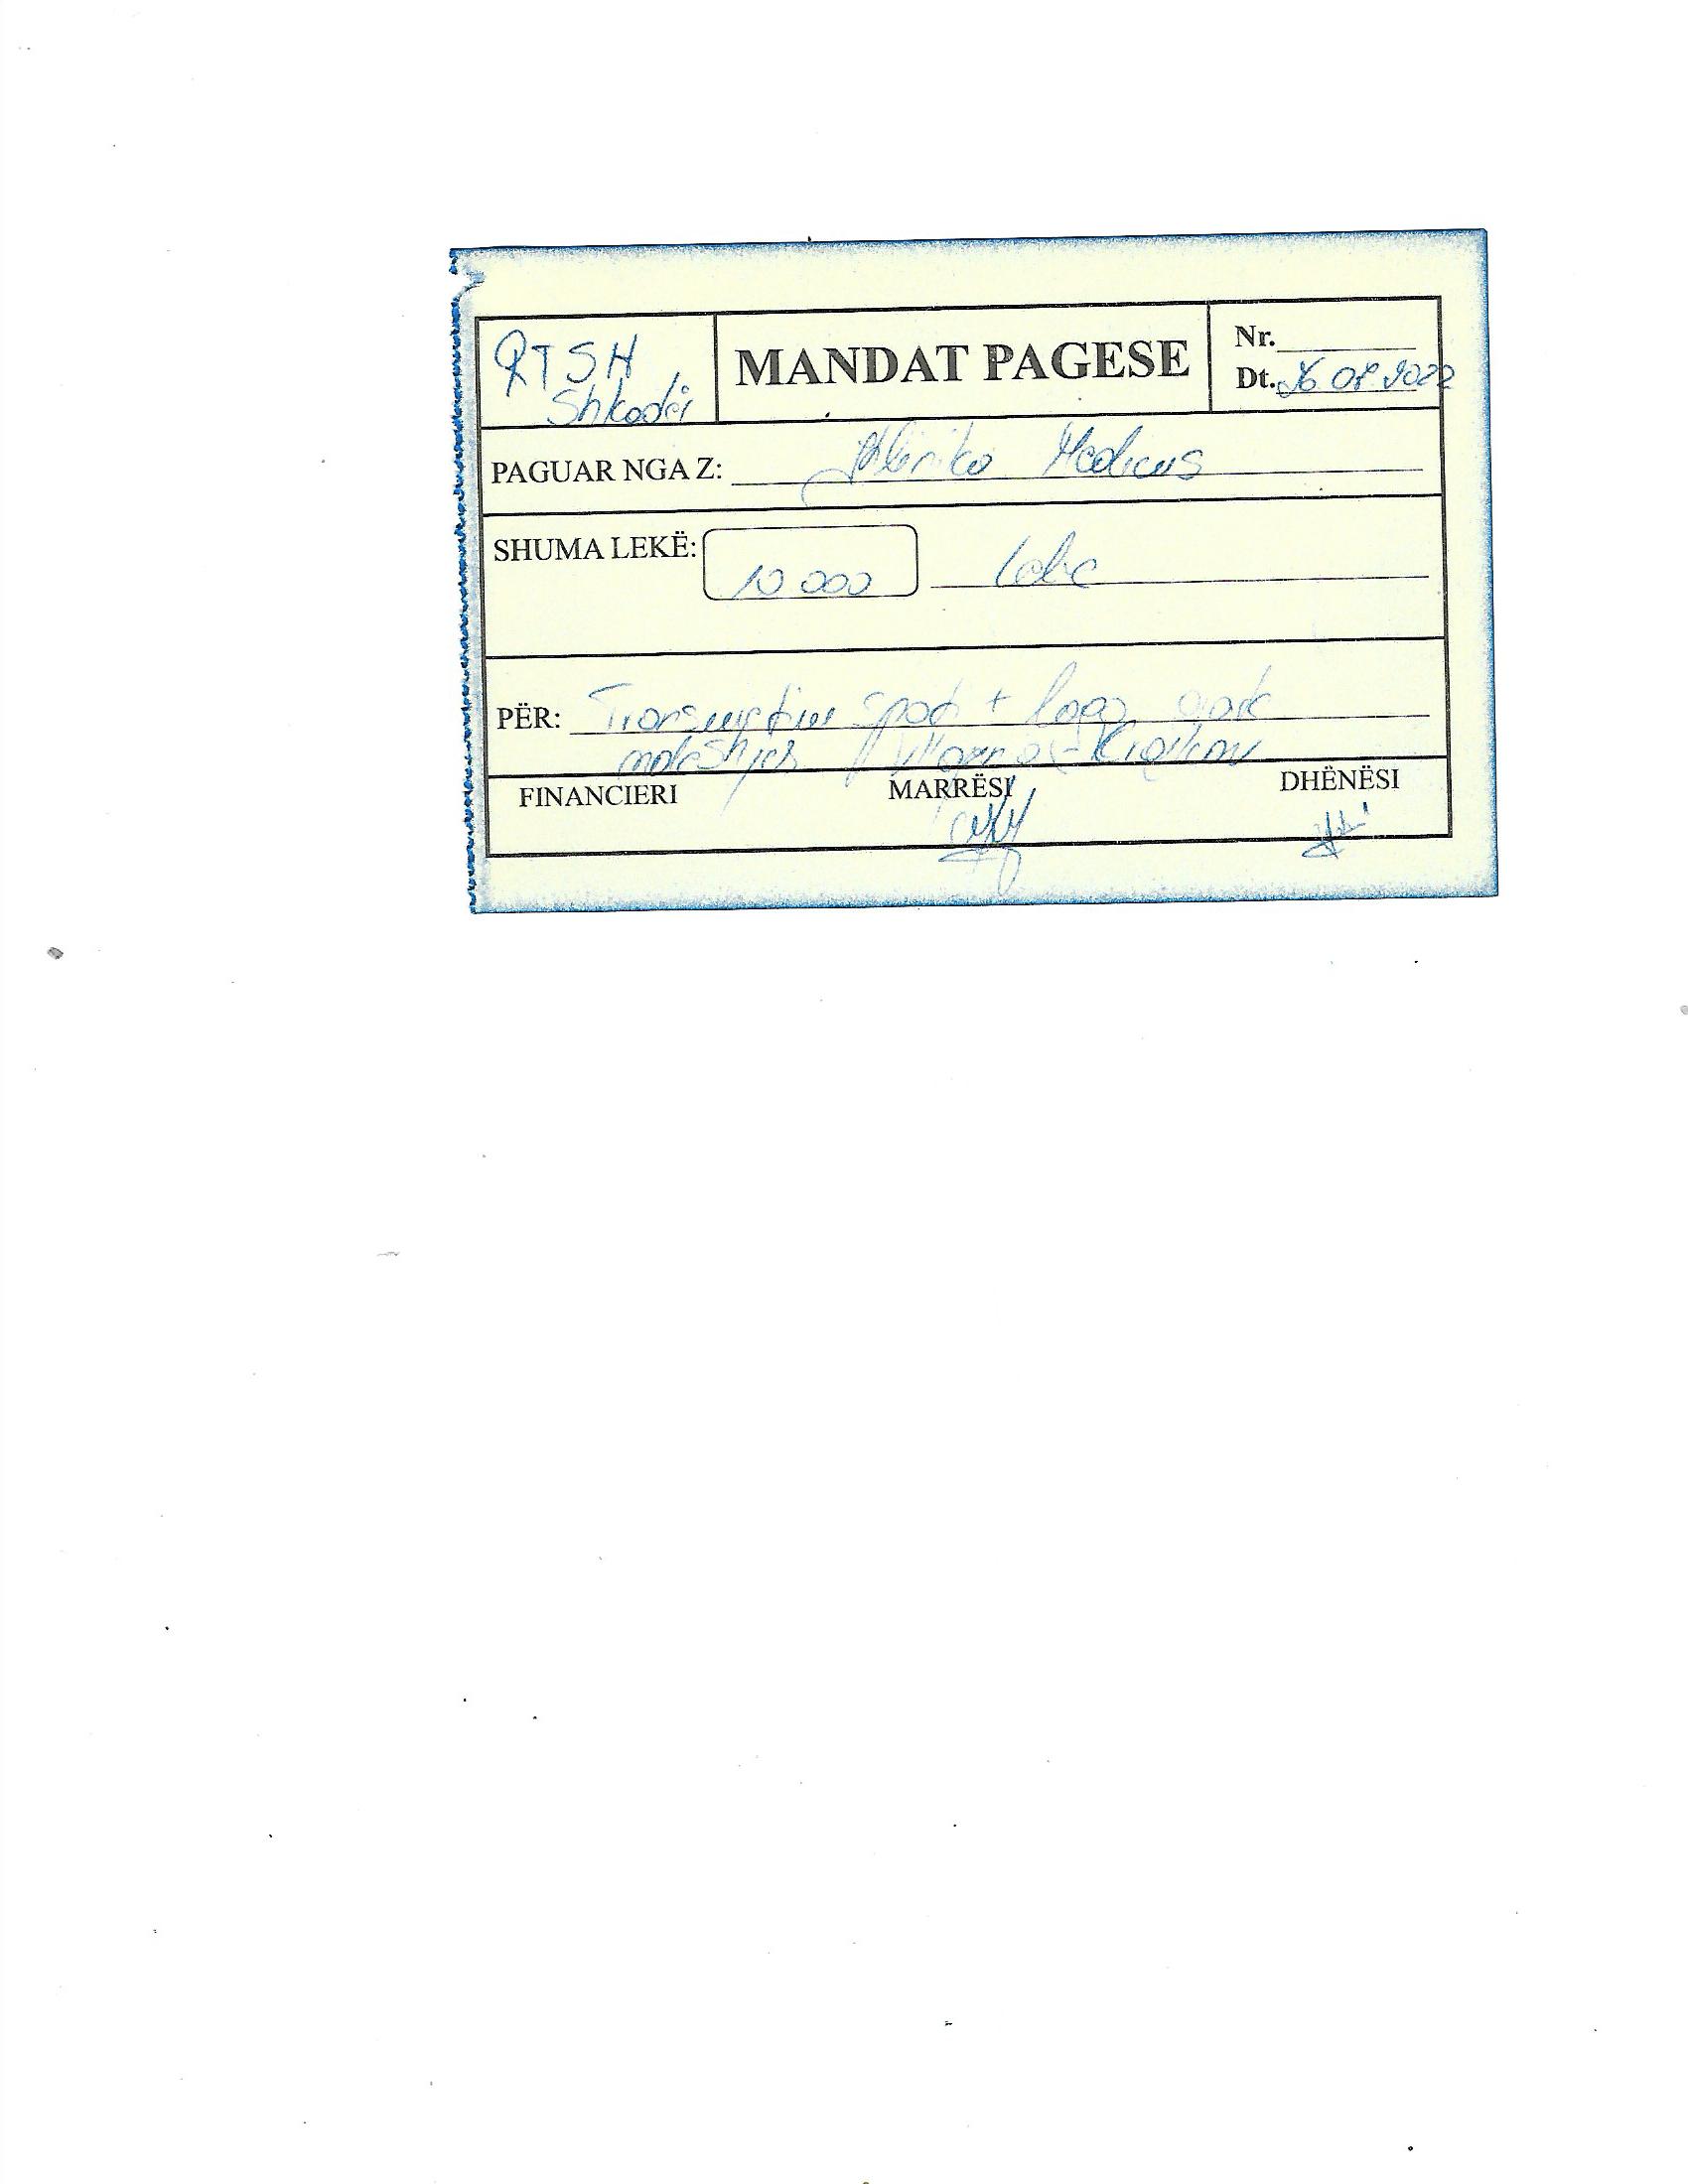 RTSH
Shkodër
MANDAT PAGESE
Nr.
Dt. 26 07 2022
PAGUAR NGA Z: Klinika Medicus
SHUMA LEKË: 10 000 leke
PËR: Transmetim spot + logo gjatë
ndeshjes
FINANCIERI MARRËSI DHËNËSI